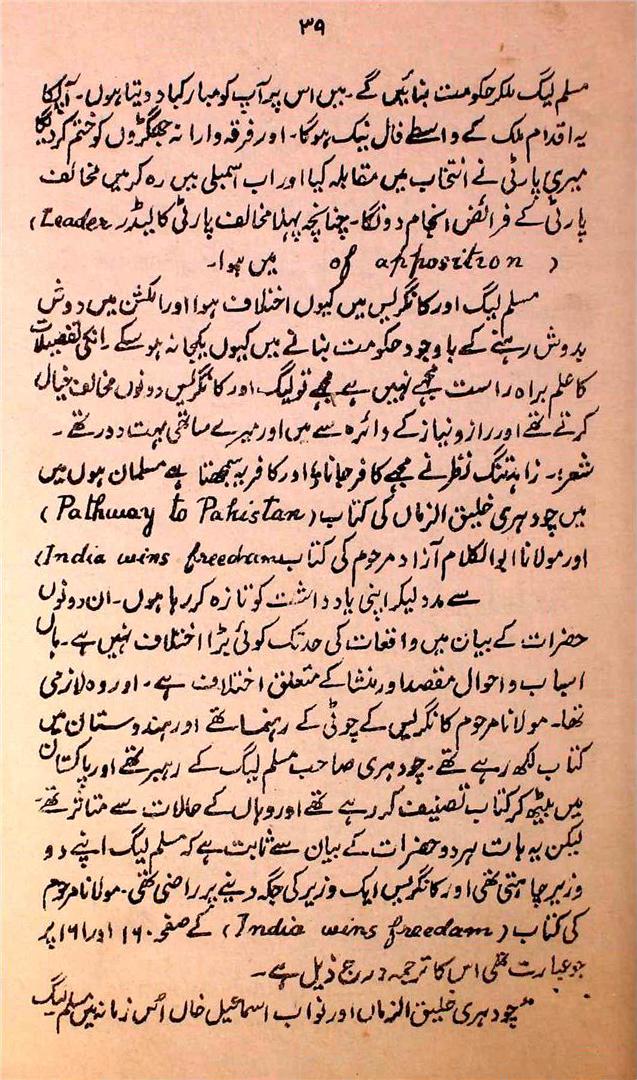 ۳۹
مسلم لیگ ملکر حکومت بنائیں گے۔ میں اس پر آپ کو مبارکباد دیتا ہوں۔ آپکا
یہ اقدام ملک کے واسطے فال نیک ہوگا۔ اور فرقہ وارانہ جھگڑوں کو ختم کر دیگا
میری پارٹی نے انتخاب میں مقابلہ کیا اور اب اسمبلی میں رہ کر میں مخالف
پارٹی کے فرائض انجام دونگا۔ چنانچہ پہلا مخالف پارٹی کا لیڈر (Leader
of apposition) میں ہوا۔
مسلم لیگ اور کانگریس میں کیوں اختلاف ہوا اور الکشن میں دوش
بدوش رہنے کے باوجود حکومت بنانے میں کیوں یکجا نہ ہو سکے۔ انکی تفصیلات
کا علم براہ راست مجھے نہیں ہے مجھے تو لیگ اور کانگریس دونوں مخالف خیال
کرتے تھے اور راز و نیاز کے دائرہ سے میں اور میرے ساتھی بہت دور تھے۔
شعر:۔ زاہد تنگ نظر نے مجھے کافر جانا اور کافر یہ سمجھتا ہے مسلمان ہوں میں
میں چودہری خلیق الزماں کی کتاب (Pathway to Pakistan)
اور مولانا ابوالکلام آزاد مرحوم کی کتاب (India wins freedom)
سے مدد لیکر اپنی یادداشت کو تازہ کر رہا ہوں۔ ان دونوں
حضرات کے بیان میں واقعات کی حد تک کوئی بڑا اختلاف نہیں ہے۔ ہاں
اسباب و احوال مقصد اور منشا کے متعلق اختلاف ہے۔ اور وہ لازمی
تھا۔ مولانا مرحوم کانگریس کے چوٹی کے رہنما تھے اور ہندوستان میں
کتاب لکھ رہے تھے۔ چودہری صاحب مسلم لیگ کے رہبر تھے اور پاکستان
میں بیٹھ کر کتاب تصنیف کر رہے تھے اور وہاں کے حالات سے متاثر تھے۔
لیکن یہ بات ہر دو حضرات کے بیان سے ثابت ہے کہ مسلم لیگ اپنے دو
وزیر چاہتی تھی اور کانگریس ایک وزیر کی جگہ دینے پر راضی تھی۔ مولانا مرحوم
کی کتاب (India wins freedom) کے صفحہ ۱۶۰ اور ۱۶۱ پر
جو عبارت تھی اس کا ترجمہ درج ذیل ہے۔
"چودہری خلیق الزماں اور نواب اسماعیل خاں اُس زمانہ میں مسلم لیگ